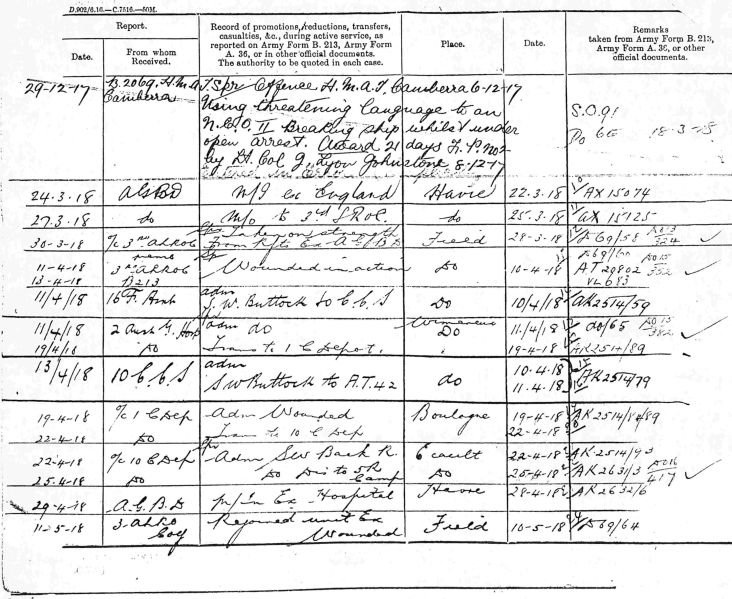 D.902/6.16.—C.7516.—50M.
Report.
Record of promotions, reductions, transfers,
casualties, &c., during active service, as
reported on Army Form B. 213, Army Form
A. 36, or in other official documents.
The authority to be quoted in each case.
Place.
Date.
Remarks
taken from Army Form B. 213,
Army Form A. 36, or other
official documents.
Date.
From whom
Received.
29-12-17 B.2069. H.M.A.T Spr Offence H.M.A.T. Canberra 6-12-17
Canberra Using threatening language to an
N.C.O. II Breaking ship whilst under
open arrest. Award 21 days F.P. No 2
by Lt Col G. Lyon Johnstone 8-12-17
S.O 91
18-3-
24.3.18 M/I ex England Havre 22.3.18 AX 15074
27.3.18 do M/O to 3rd do 25-3-18 AX 15125
Taken on strength
30-3-18 From Rfts Ex A.G.B.D Field 28-3-18 D69/58
11-4-18 Wounded in action Do 10-4-18 AT 29802
13-4-18 B213
11/4/18 adm S.W. Buttock to C.C.S Do 10/4/18 AK2514/59
Wimereux
11/4/18 2 Aust G. Hosp adm do Do 11/4/18 do/65
Do Trans to 1 C Depot. 19-4-18 AK2514/89
13/4/18 10 C.C.S adm SW Buttock to A.T. 42 do 10-4-18
11-4-18 AK2514/79
19-4-18 O/c 1 C Dep Adm Wounded Boulogne 19-4-18
22-4-18 Do Trans to 10 C Dep 22-4-18
22-4-18 O/c 10 C Dep Adm SW Back R. Ecault 22-4-18 AK2514/93
25-4-18 Do Do Dis to 5R Camp Do 25-4-18 AK2631/3
29-4-18 A.G.B.D M/In Ex Hospital Havre 28-4-18 AK2632/6
11-5-18 Rejoined unit Ex Wounded Field 10-5-18 D69/64